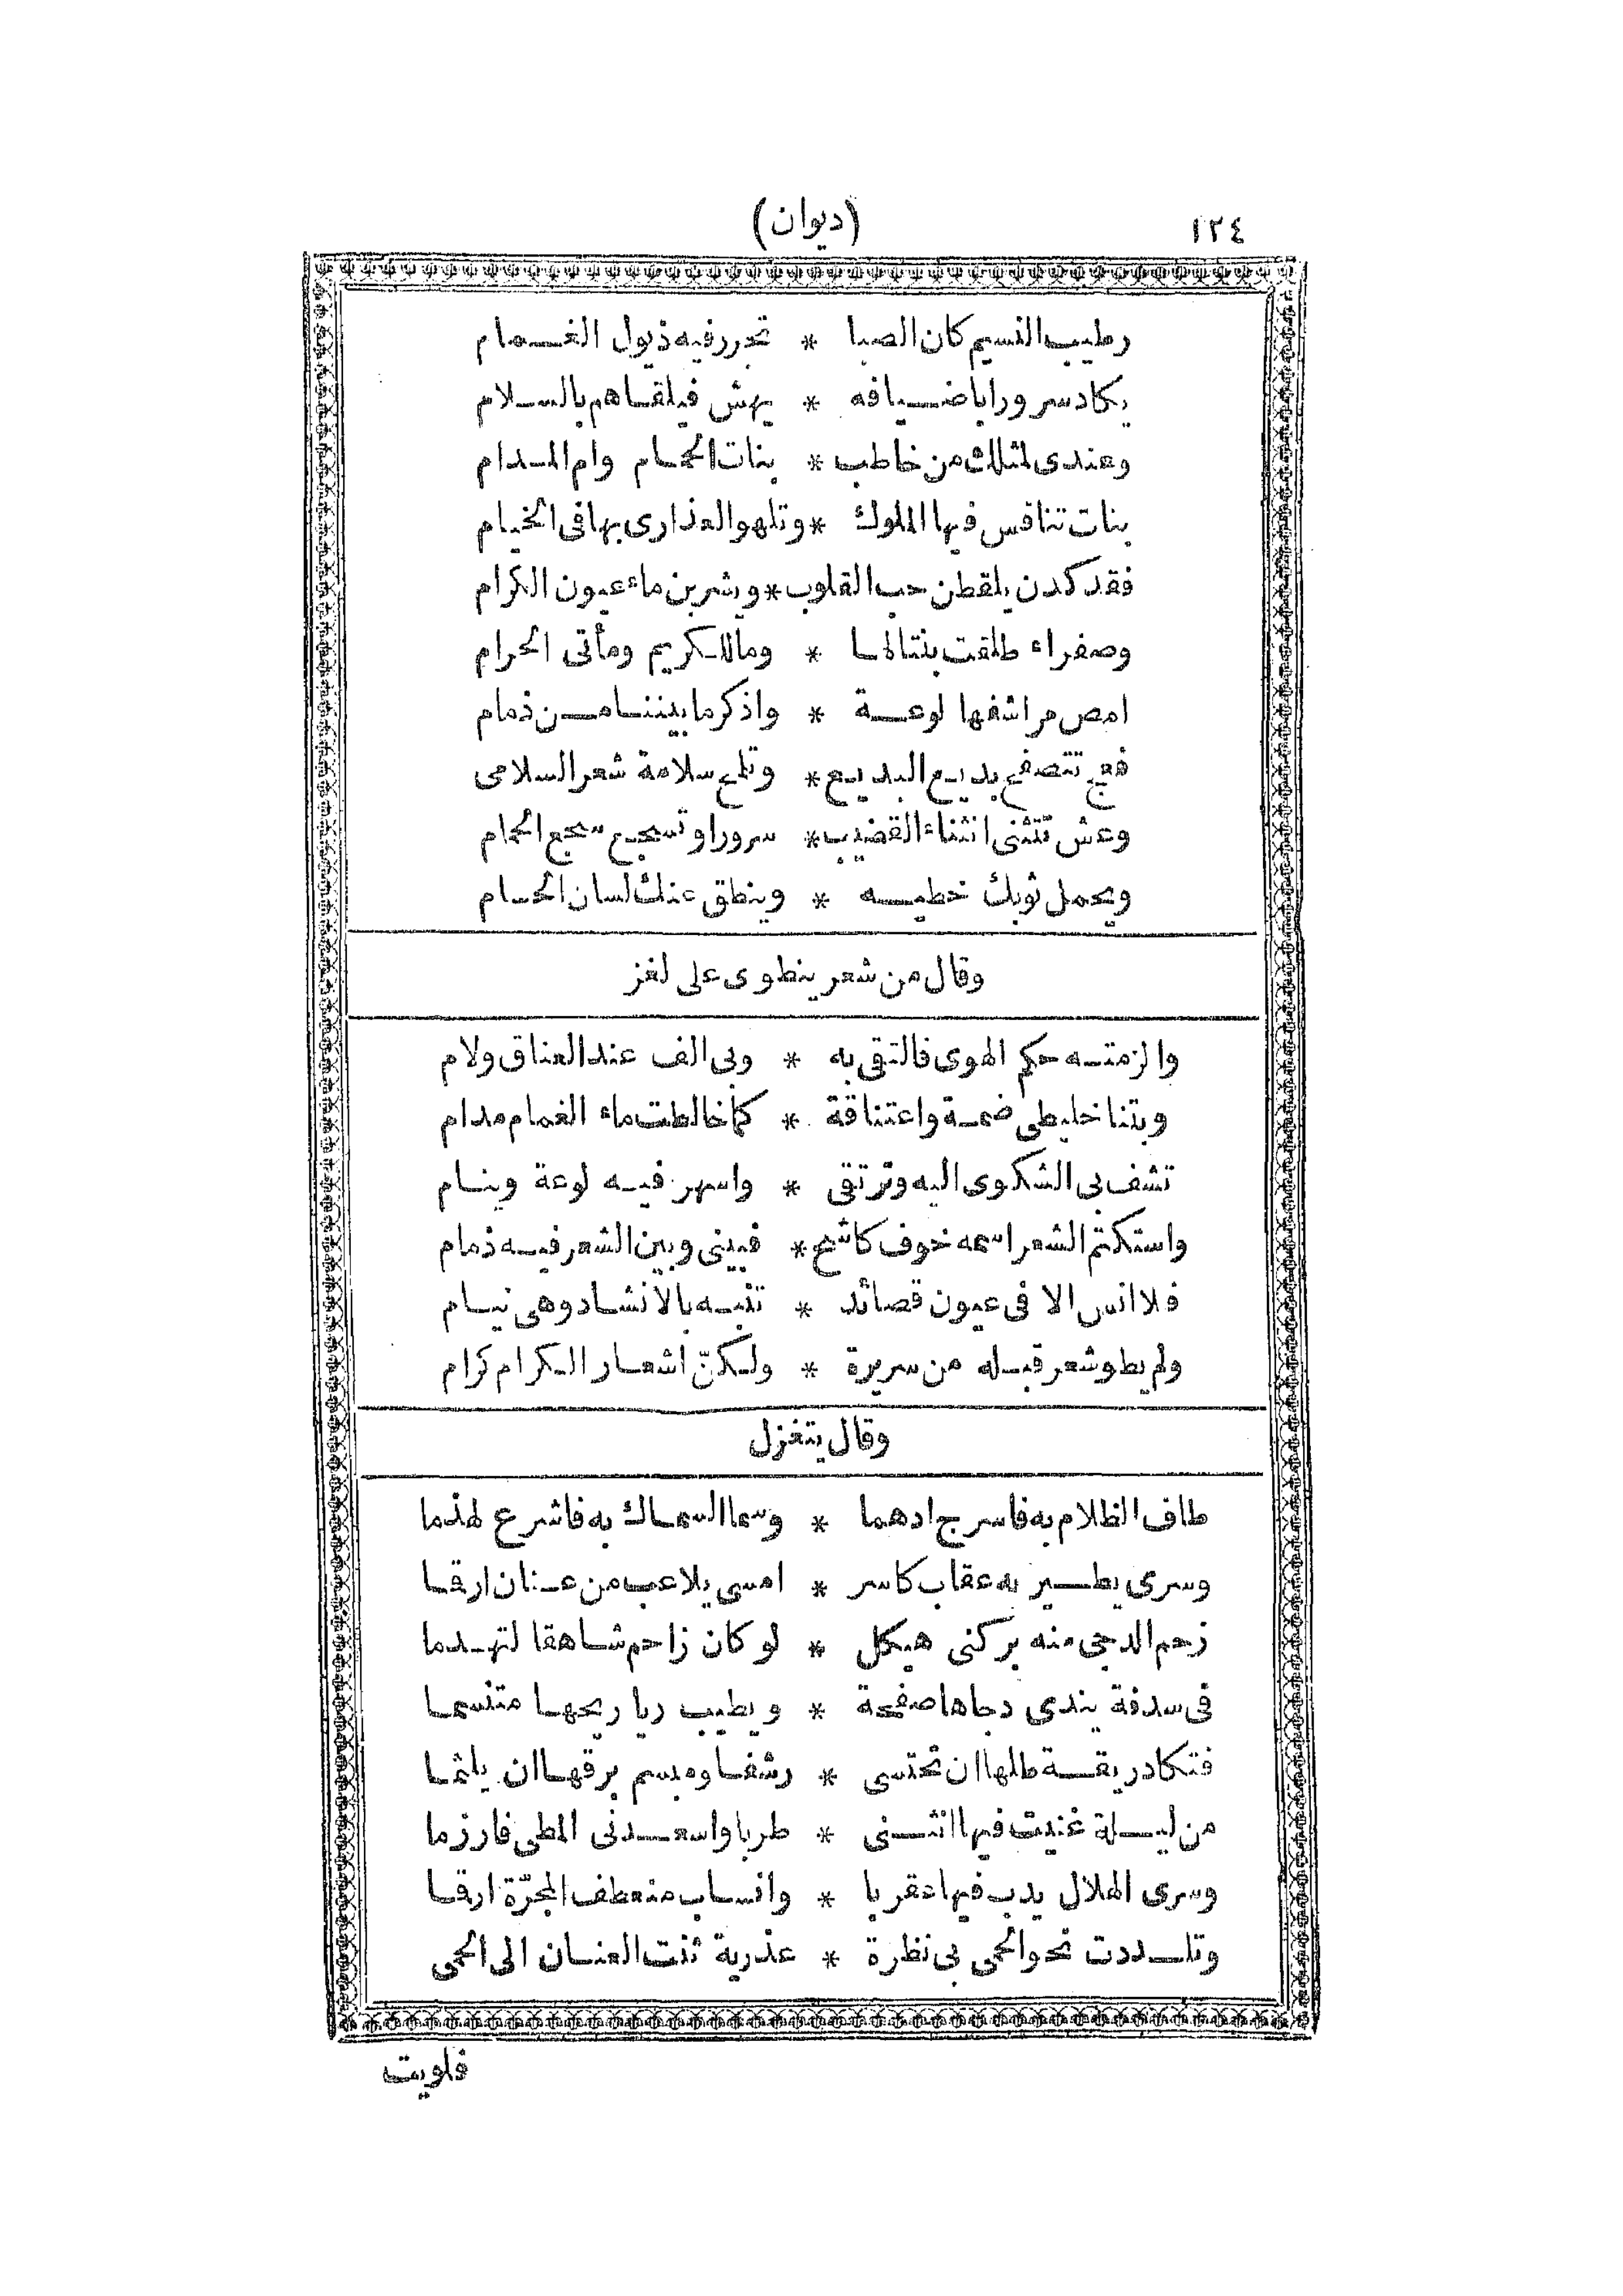 ١٢٤
(ديوان)
رطيب النسيم كان الصبا * تجرر فيه ذيول الغمام
يكاد سرورا باضيافه * يهش فيلقاهم بالسلام
وعندى لمثلك من خاطب * بنات الحمام وام المدام
بنات تنافس فيها الملوك * وتلهو العذارى بها فى الخيام
فقد كدن يلقطن حب القلوب * ويشربن ماء عيون الكرام
وصفراء طلقت بنتا لها * وما للكريم ومأتى الحرام
امص مراشفها لوعة * واذكر ما بيننا من ذمام
فعج تتصفح بديع البديع * وتلمح سلامة شعر السلامى
وعش تتثنى انثناء القضيب * سرورا وتسجع سجع الحمام
ويحمل ثوبك خطيه * وينطق عنك لسان الحسام
وقال من شعر ينطوى على لغز
والزمته حكم الهوى فالتقى به * وبى الف عند العناق ولام
وبتنا خليطى ضمة واعتناقة * كما خالطت ماء الغمام مدام
تشف بى الشكوى اليه وترتقى * واسهر فيه لوعة وينام
واستكتم الشعر اسمه خوف كاشح * فبينى وبين الشعر فيه ذمام
فلا انس الا فى عيون قصائد * تنبه بالانشاد وهى نيام
ولم يطو شعر قبله من سريرة * ولكنّ اشعار الكرام كرام
وقال يتغزل
طاف الظلام به فاسرج ادهما * وسما السماك به فاشرع لهذما
وسرى يطير به عقاب كاسر * امسى يلاعب من عنان ارقما
زحم الدجى منه بركنى هيكل * لو كان زاحم شاهقا لتهدما
فى سدفة يندى دجاها صفحة * ويطيب ريا ريحها متنسما
فتكاد ريقة طلها ان تحتسى * رشفا ومبسم برقها ان يلثما
من ليلة غنيت فيها انثنى * طربا واسعدنى المطى فارزما
وسرى الهلال يدب فيها عقربا * وانساب منعطف المجرّة ارقما
وتلددت نحو الحمى بى نظرة * عذرية ثنت العنان الى الحمى
فلويت